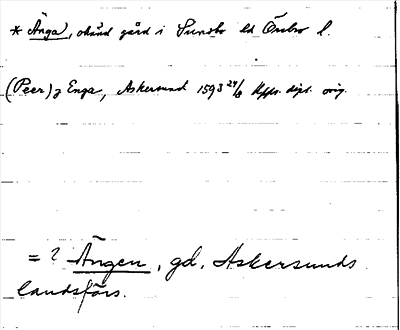 * Änga, okänd gård i Sundbo hd Örebro l.
(Peer) j Enga, Askersund 1593 24/6 Uppr. dipl. orig.
= ? Ängen, gd, Askersunds
landsförs.